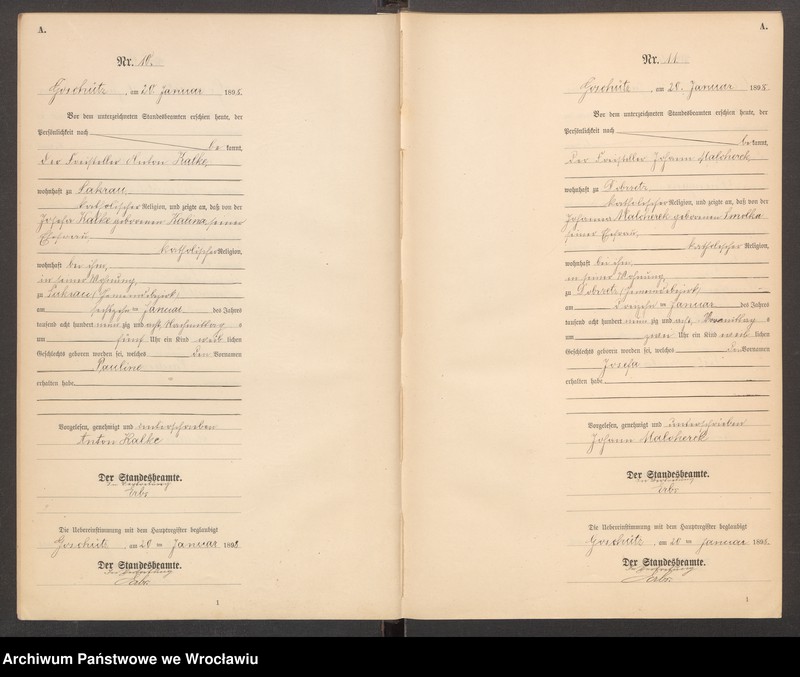 A.
Nr. 10.
Goschütz, am 20 Januar 1898.
Vor dem unterzeichneten Standesbeamten erschien heute, der
Persönlichkeit nach
be kannt,
der Freisteller Anton Kalke,
wohnhaft zu Lakrau,
katholischer Religion, und zeigte an, daß von der
Josefa Kalke geborenen Kalina, seiner
Ehefrau,
katholischer Religion,
wohnhaft bei ihm,
in seiner Wohnung,
zu Lakrau, Gemeindebezirk,
am sechszehn ten Januar des Jahres
tausend acht hundert neun zig und acht, Nachmittag s
um fünf Uhr ein Kind weib lichen
Geschlechts geboren worden sei, welches den Vornamen
Pauline
erhalten habe.
Vorgelesen, genehmigt und unterschrieben
Anton Kalke
Der Standesbeamte.
In Vertretung
Erbs
Die Uebereinstimmung mit dem Hauptregister beglaubigt
Goschütz, am 20 ten Januar 1898.
Der Standesbeamte.
In Vertretung
Erbs.
1
A.
Nr. 11
Goschütz, am 20. Januar 1898.
Vor dem unterzeichneten Standesbeamten erschien heute, der
Persönlichkeit nach
be kannt,
der Freisteller Johann Malcherek,
wohnhaft zu
katholischer Religion, und zeigte an, daß von der
Johanna Malcherek geborenen Smolka
seiner Ehefrau,
katholischer Religion,
wohnhaft bei ihm,
in seiner Wohnung,
zu Gemeindebezirk,
am ten Januar des Jahres
tausend acht hundert neun zig und acht, Vormittag s
um zwei Uhr ein Kind weib lichen
Geschlechts geboren worden sei, welches den Vornamen
Josefa
erhalten habe.
Vorgelesen, genehmigt und unterschrieben
Johann Malcherek
Der Standesbeamte.
In Vertretung
Erbs
Die Uebereinstimmung mit dem Hauptregister beglaubigt
Goschütz, am 20 ten Januar 1898.
Der Standesbeamte.
In Vertretung
Erbs.
1
Archiwum Państwowe we Wrocławiu